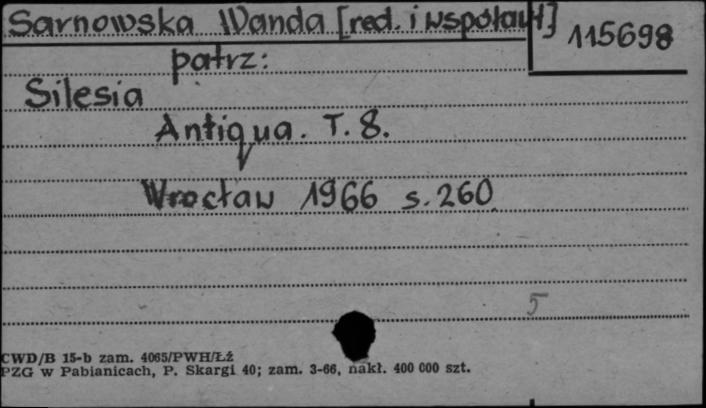 Sarnowska Wanda [red. i współaut]
115698
patrz:
Silesia
Antiqua. T. 8.
Wrocław 1966 s. 260
5
CWD/B 15-b zam. 4065/PWH/Łż
PZG w Pabianicach, P. Skargi 40; zam. 3-66, nakł. 400 000 szt.